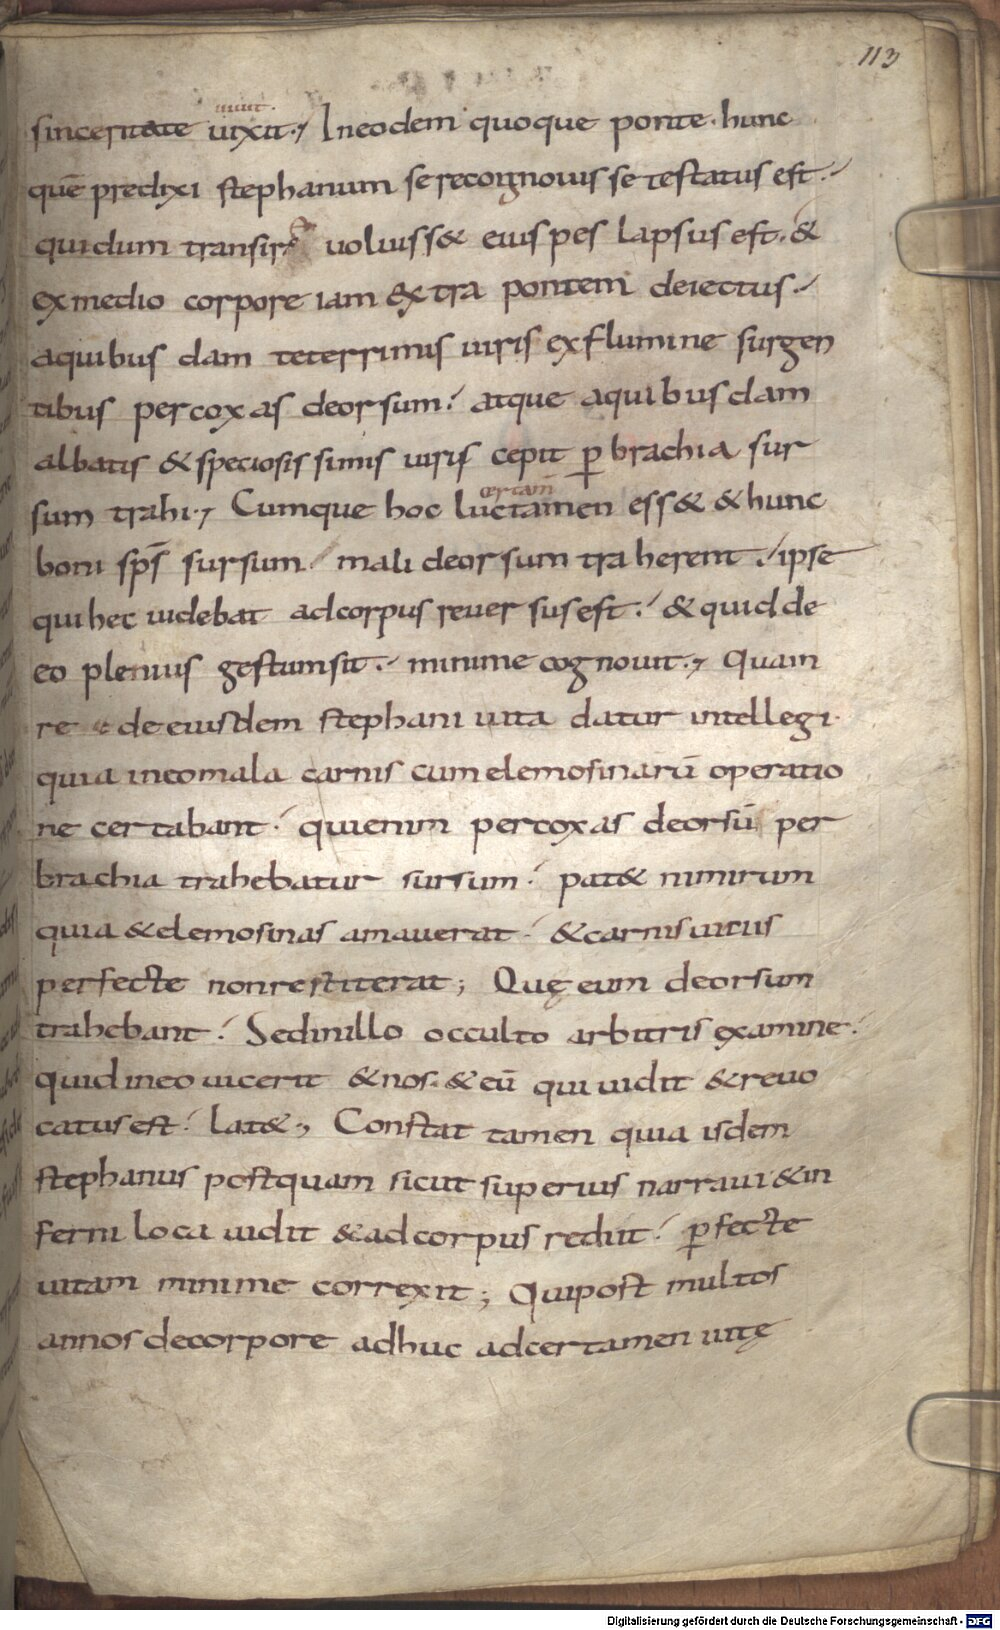 113
uiuit.
sinceritate uixit., In eodem quoque ponte. hunc
quē predixi stephanum se recognouisse testatus est.
qui dum transire uoluiss& eius pes lapsus est. &
ex medio corpore iam extra pontem deiectus.
a quibusdam teterrimis uiris ex flumine surgen
tibus per coxas deorsum. atque a quibusdam
albatis & speciosissimis uiris cepit p̄ brachia sur
sum trahi., Cumque hoc luctamen ess& & hunc
certam̄
boni sp̄s sursum. mali deorsum traherent. ipse
qui hec uidebat ad corpus reuersus est. & quid de
eo plenius gestum sit. minime cognouit., Quam
re de eiusdem stephani uita datur intellegi.
quia in eo mala carnis cum elemosinarū operatio
ne certabant. qui enim per coxas deorsū per
brachia trahebatur sursum. pat& nimirum
quia & elemosinas amauerat. & carnis uitiis
perfecte non restiterat; Quę eum deorsum
trahebant. Sed in illo occulto arbitris examine.
quid in eo uicerit & nos. & eū qui uidit & reuo
catus est. lat&., Constat tamen quia isdem
stephanus postquam sicut superius narraui & in
ferni loca uidit & ad corpus rediit. p̄fecte
uitam minime correxit; Qui post multos
annos de corpore adhuc ad certamen uitę
Digitalisierung gefördert durch die Deutsche Forschungsgemeinschaft - DFG